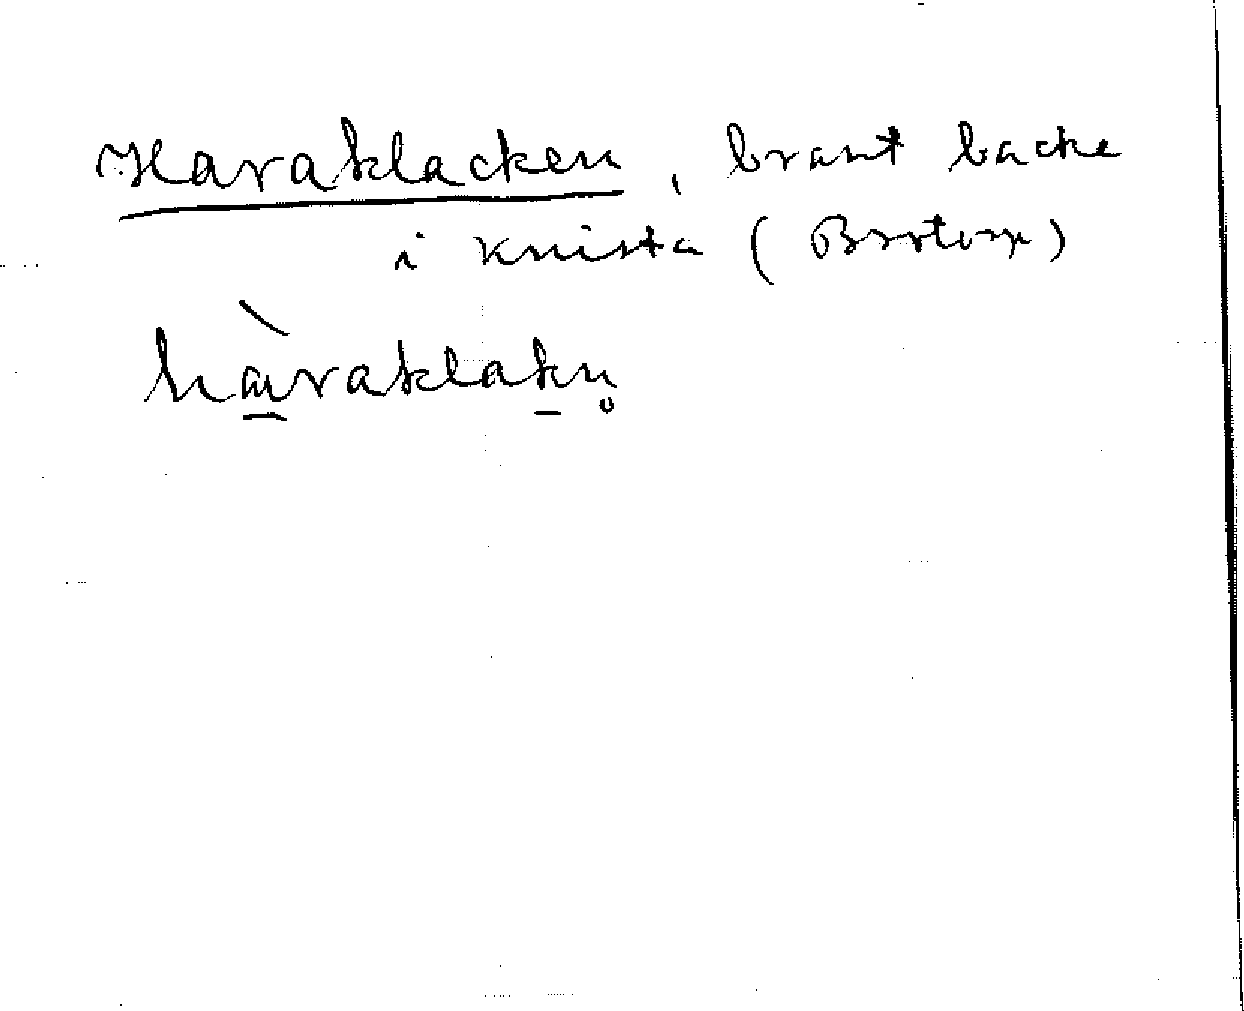 Haraklacken, brant backe
i Knista (Brotorp)
hàraklakn̥